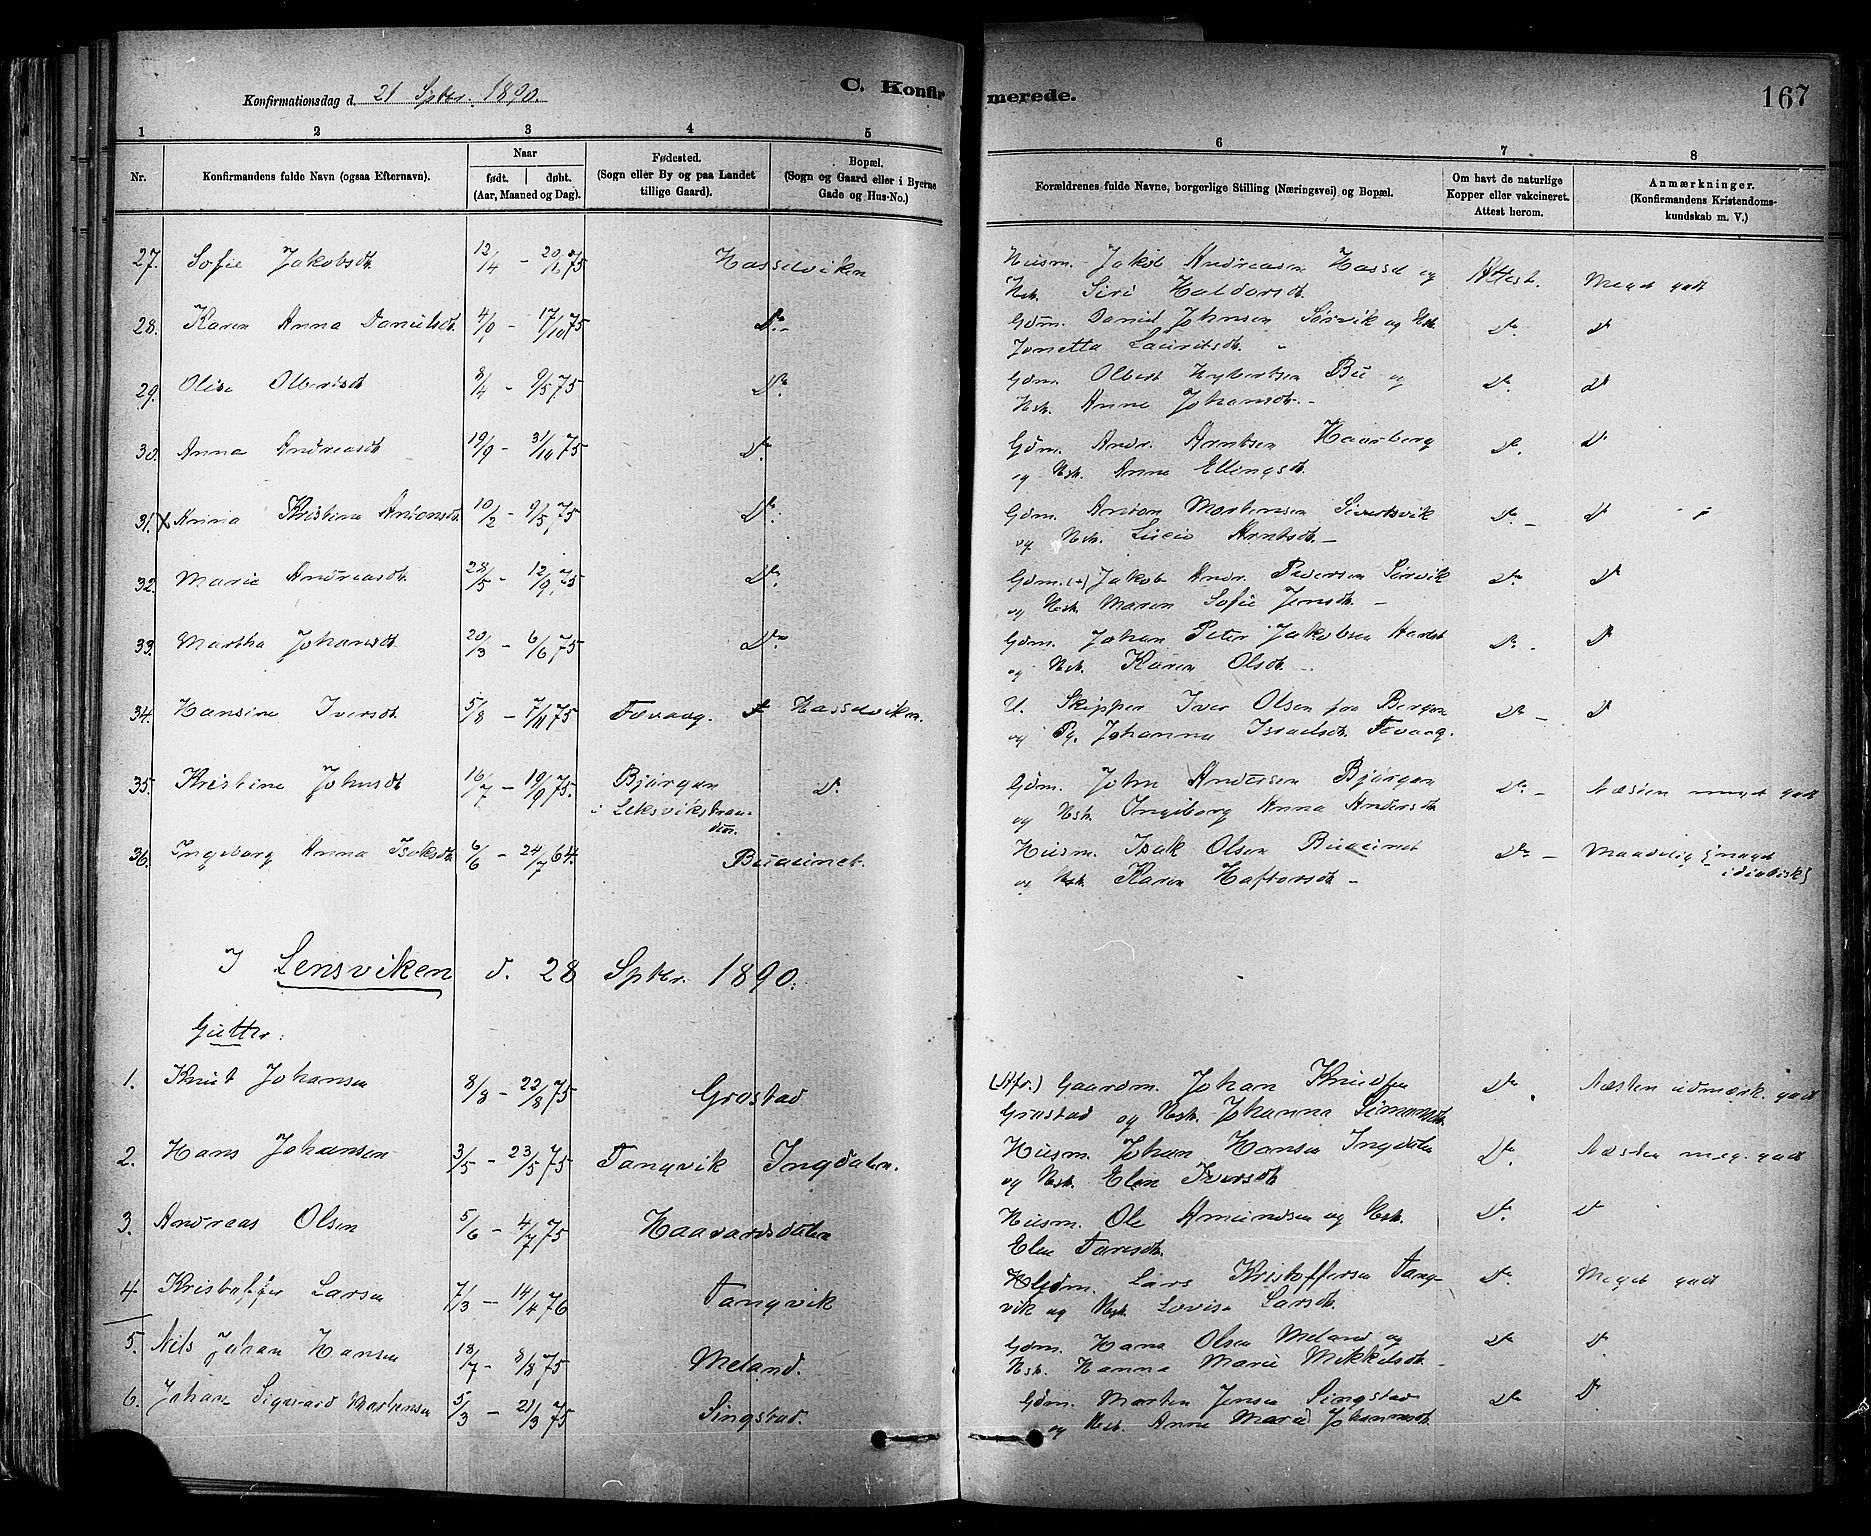 Konfirmationsdag d. 21 Sptbr. 1890.
C. Konfirmerede.
167
1 2 3 4 5 6 7 8
Nr.
Konfirmandens fulde Navn (ogsaa Efternavn).
Naar
født. døbt.
(Aar, Maaned og Dag).
Fødested.
(Sogn eller By og paa Landet
tillige Gaard).
Bopæl.
(Sogn og Gaard eller i Byerne
Gade og Hus-No.)
Forældrenes fulde Navne, borgerlige Stilling (Næringsvei) og Bopæl.
Om havt de naturlige
Kopper eller vakcineret.
Attest herom.
Anmærkninger.
(Konfirmandens Kristendoms-
kundskab m. V.)
27. Sofie Jakobsdt. 12/4 - 75 Hasselviken Husm. Jakob Andreasen Hassel og Attest. Meget godt
Hst. Siri Haldorsdt.
28. Karen Anna Danielsdt. 4/9 - 17/10 75 Do. Gdm. Daniel Johnsen Sørvik og Hst. Do. Do
Jonetta Lauritsdt.
29. Olise Olbertsdt 8/4 - 9/5 75 Do. Gdm. Olbert Hybertsen Bu og Do. Do
Hst. Anne Johansdt.
30. Anna Andreasdt 19/9 - 31/10 75 Do. Gdm. Andr. Arntsen Haarberg Do. Do
og Hst. Anne Ellingsdt.
31. x Anna Kristine Antonsdt. 10/2 - 9/5 75 Do. Gdm. Anton Mortensen Sivertsvik Do. - Do
og Hst. Lucie Arntsdt. -
32. Marie Andreasdt. 28/5 - 12/9 75 Do. Gdm. (+) Jakob Andr. Pedersen Sørvik Do. Do
og Hst. Maren Sofie Jensdt. -
33. Martha Johansdt 20/3 - 6/6 75 Do. Gdm. Johan Peter Jakobsen Do. Do
og Hst. Karen Olsdt.
34. Hansine Iversdt. 5/8 - 7/11 75 Fevaag. Hasselviken. U. Skipper Iver Olsen fra Bergen Do - Do
og Pg. Johanna Israelsdt. Fevaag.
35. Kristine Johnsdt 16/7 - 19/9 75. Bjørgan Do. Gdm. John Andersen Bjørgan Do. - Næsten meget godt
i Leksvikstran- og Hst. Ingeborg Anna Andersdt
den.
36. Ingeborg Anna Isaksdt. 6/6 - 24/7 64. Buaunet. Husm. Isak Olsen Buaunet Do - Maadelig (noget
og Hst. Karen Haftorsdt - idiotisk)
I Lensviken d. 28 Sptbr. 1890.
Gutter:
1. Knut Johansen 8/8 - 22/8 75 Grøstad (Afr.) Gaardm. Johan Knudsen Do. Næsten udmærk. godt
Grøstad og Hst. Johanna Simonsdt.
2. Hans Johansen 3/5 - 23/5 75 Tangvik Ingdalen. Husm. Johan Hansen Ingdalen Do. Næsten meg. godt
og Hst. Elen Iversdt.
3. Andreas Olsen 5/6 - 4/7 75 Haavardsdalen Husm. Ole Amundsen og Hst. Do. Do
Elen Taresdt.
4. Kristoffer Larsen 7/3 - 14/4 76 Tangvik Gdm. Lars Kristoffersen Tang- Do. Meget godt
vik og Hst. Lovise Larsdt.
5. Nils Johan Hansen 18/7 - 8/8 75 Meland. Gdm. Hans Olsen Meland og Do Do.
Hst. Hanna Marie Mikkelsdt.
6. Johan Sigvard Mortensen 5/3 - 21/3 75 Singstad. Gdm. Morten Jensen Singstad Do Do.
og Hst. Anne Marie Johannesdt.